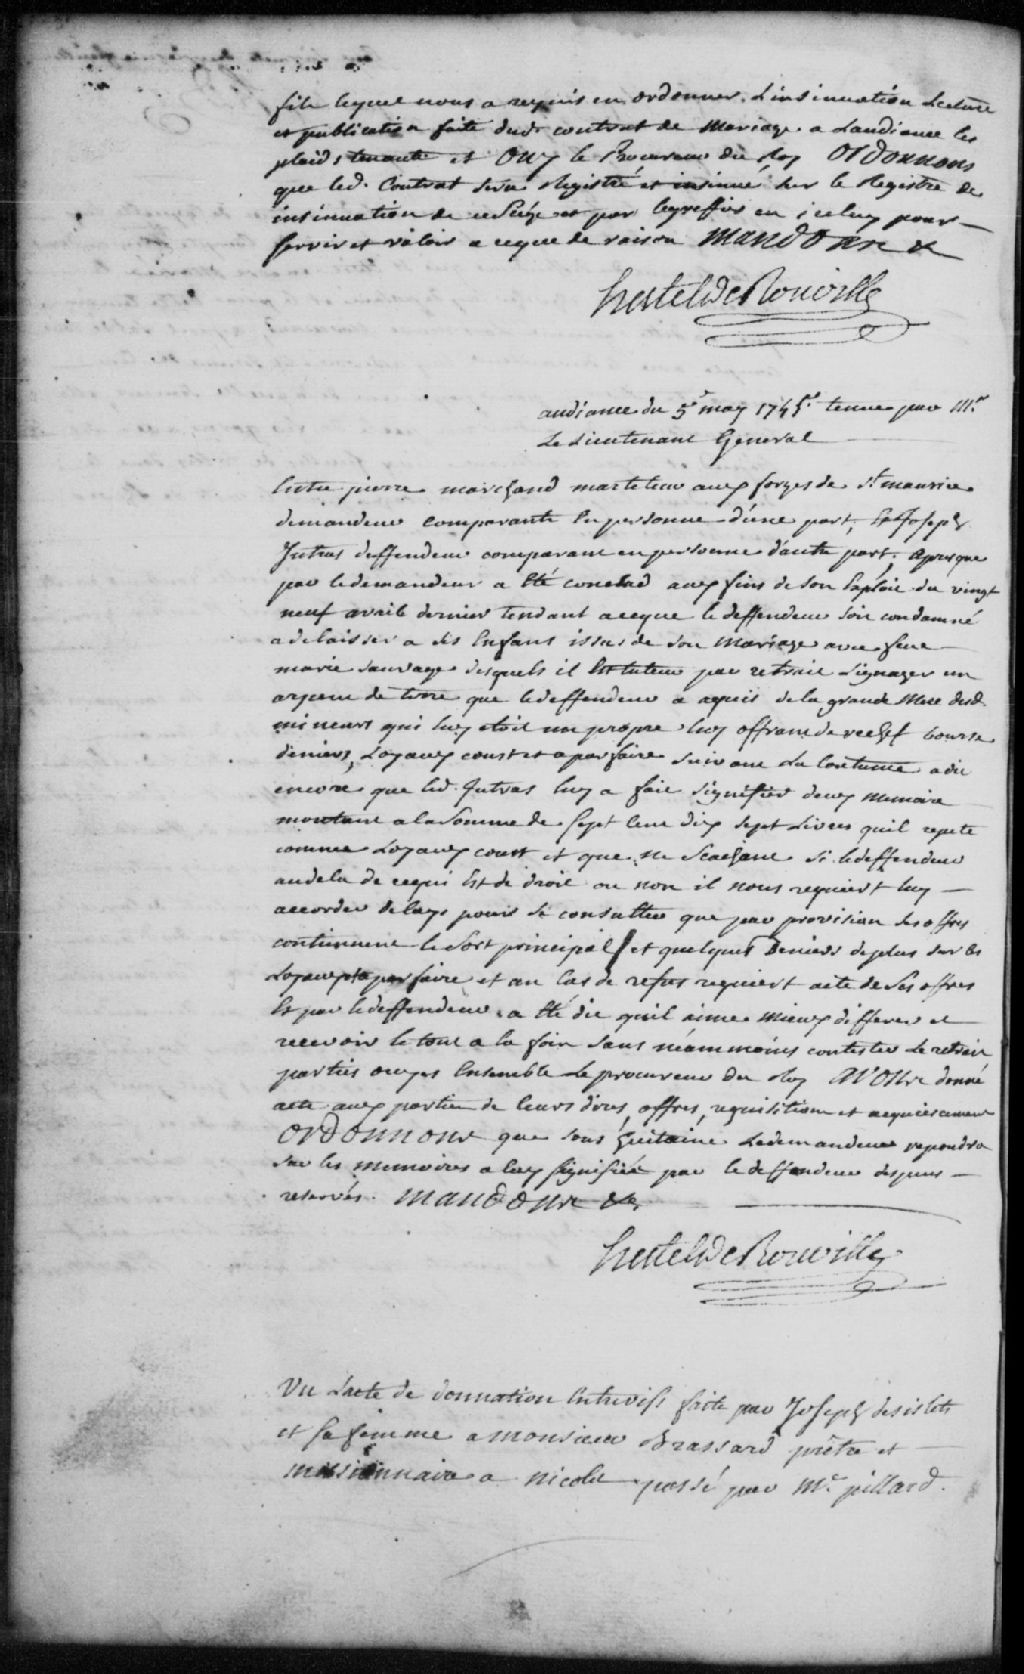 file lequel nous a requis en ordonner. L'insinuation Lecture
et publication faite dud. contrat de mariage a Laudiance les
plaids tenants et Ouy le Procureur du Roy Ordonnons
que led. Contrat sera Registré et insinué sur le Registre de
insinuation de ce siége et par le greffier en iceluy pour
servir et valoir a ceque de raison Mandons &
hertel de Rouville
audiance du 5e may 1745. tenue par Mr.
Le Lieutenant General
Entre pierre marchand marteleur aux forges de st maurice
demandeur comparante En personne d'une part, Et Joseph
Jutras deffendeur comparant en personne d'autre part, Apres que
par le demandeur a Eté conclud aux fins de son Exploit du vingt
neuf avril dernier tendant a ceque le deffendeur soit condamné
a delaisser a ses Enfans issus de son mariage avec feue
marie sauvage desquels il Est tuteur par retrait Lignager un
arpent de terre que le deffendeur a aquis de la grande Mere desd.
mineurs qui luy etoit un propre luy offrant derechef bourse
deniers, Loyaux coust et a parfaire suivant La Coutume a dit
encore que led. Jutras luy a fait signifier deux memoire
montant a la somme de sept Cent dix sept Livres quil repete
comme Loyaux coust et que ne Scachant si le deffendeur
audela de cequi Est de droit ou non il nous requiert luy
accorder delays pour se consulter que par provision ses offres
contiennent le sort principal et quelques Deniers deplus sur les
Loyaux a parfaire et au Cas de refus requiert acte de Ses offres
Et par le deffendeur a Eté dit quil aime mieux differer et
recevoir le tout a la fois sans néammoins contester Le retrait
parties ouyes Ensemble Le procureur du Roy AVONS donné
acte aux partie de leurs dires, offres, requisition et acquiescement
Ordonnons que sous huitaine Le demandeur repondra
sur les memoires a luy signifié par le deffendeur depens
reservés. Mandons &c
hertel de Rouville
Vu L'acte de donnation Entrevifs faite par Joseph desislets
et sa femme a monsieur Brassard prêtre et
missionnaire a nicolet passé par Mr. pillard.